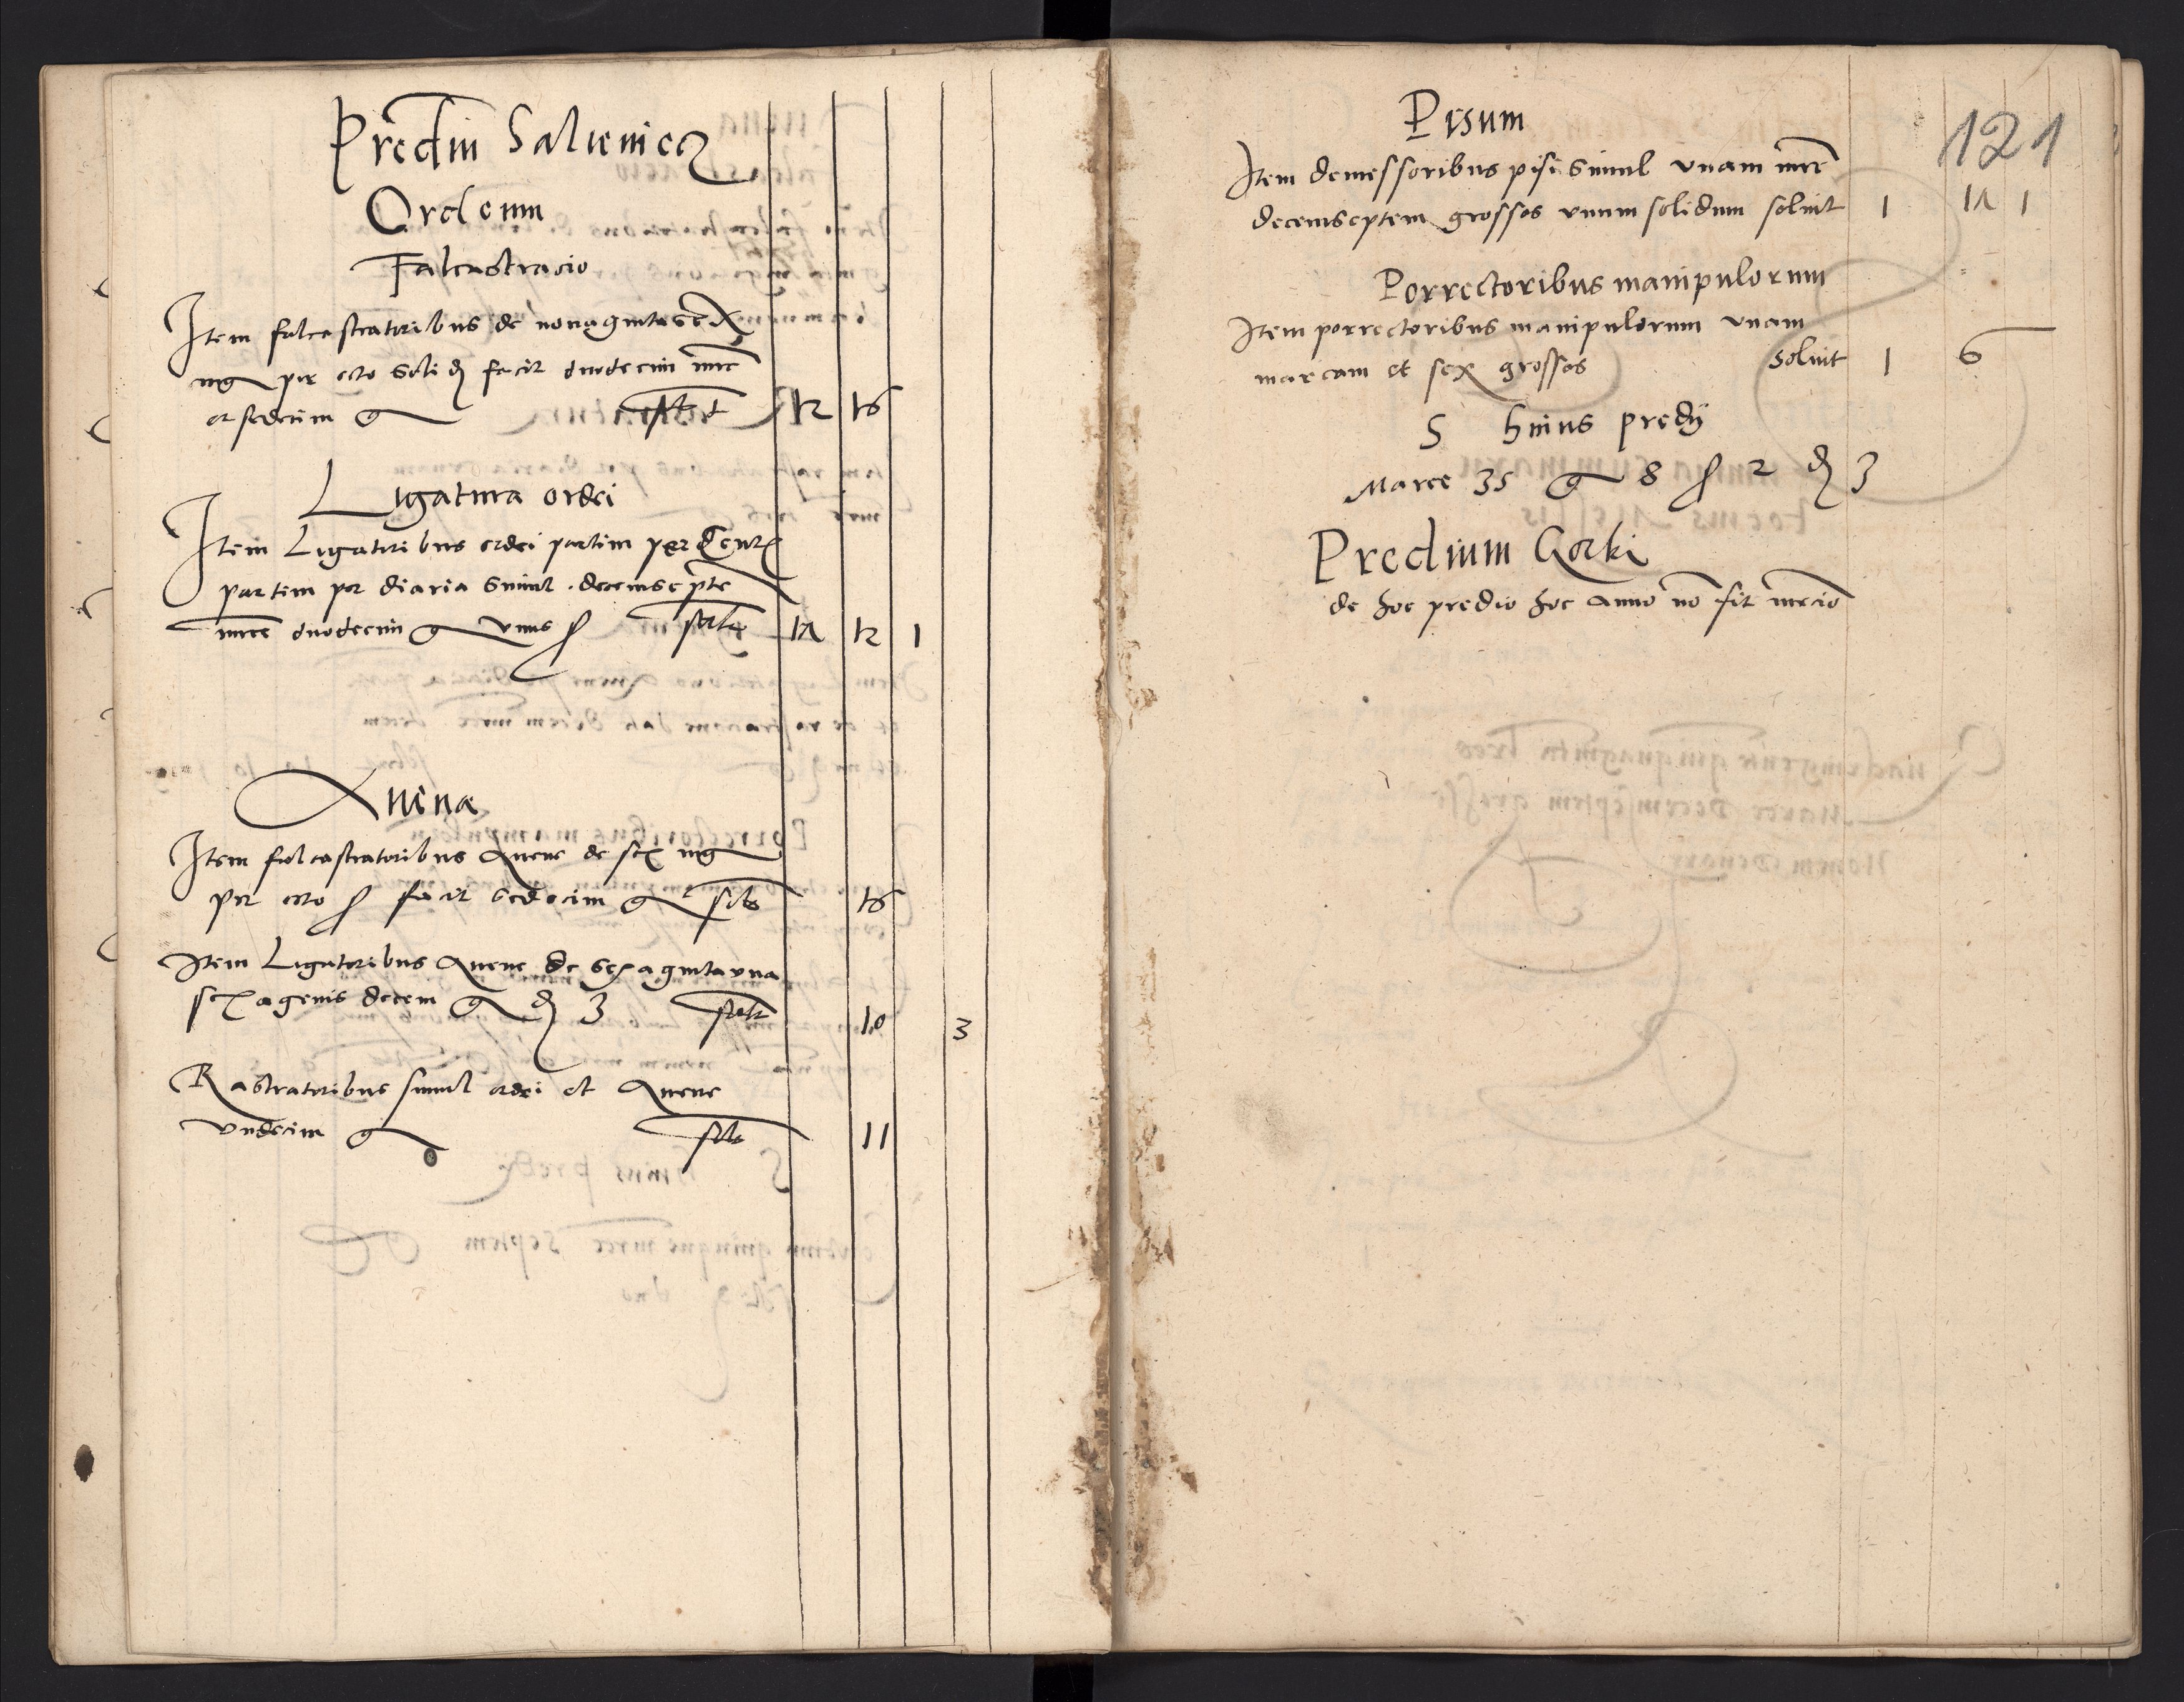 Prediu Saluenicz
Ordeum
Falcastracio
Item falcastratoribus de nonagintasex
iug per octo solid facit duodecim mrc
et sedecim g solt 12 16
Ligatura ordei
Item Ligatoribus ordei partim per
partim per diaria simul decemsepte
mrce duodecim g vnus s solt 17 12 1
Auena
Item falcastratoribus Auene de sex iug
per octo s facit sedecim g solt 16
Item Ligatoribus Auene de sexagintavna
sexagenis decem g d 3 solt 10 3
Rastratoribus simul ordei et Auene
vndecim g solt 11
121
Pisum
Item demessoribus pisi simul vnam mrc
decemseptem grossos vnum solidum soluit 1 17 1
Porrectoribus manipulorum
Item porrectoribus manipulorum vnam
marcam et sex grossos soluit 1 6
S huius predij
Marce 35 g 8 s 2 d 3
Predium Gorki
de hoc predio hoc Anno no fit mecio